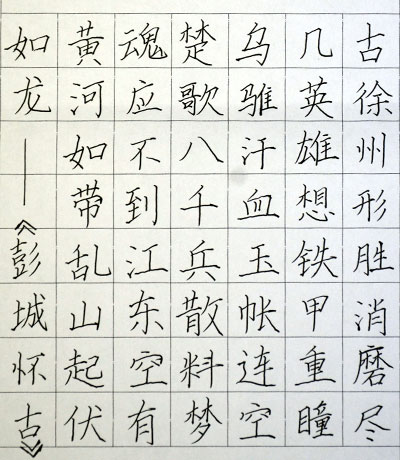 古徐州形胜消磨尽
几英雄想铁甲重瞳
乌骓汗血玉帐连空
楚歌八千兵散料梦
魂应不到江东空有
黄河如带乱山起伏
如龙——《彭城怀古》